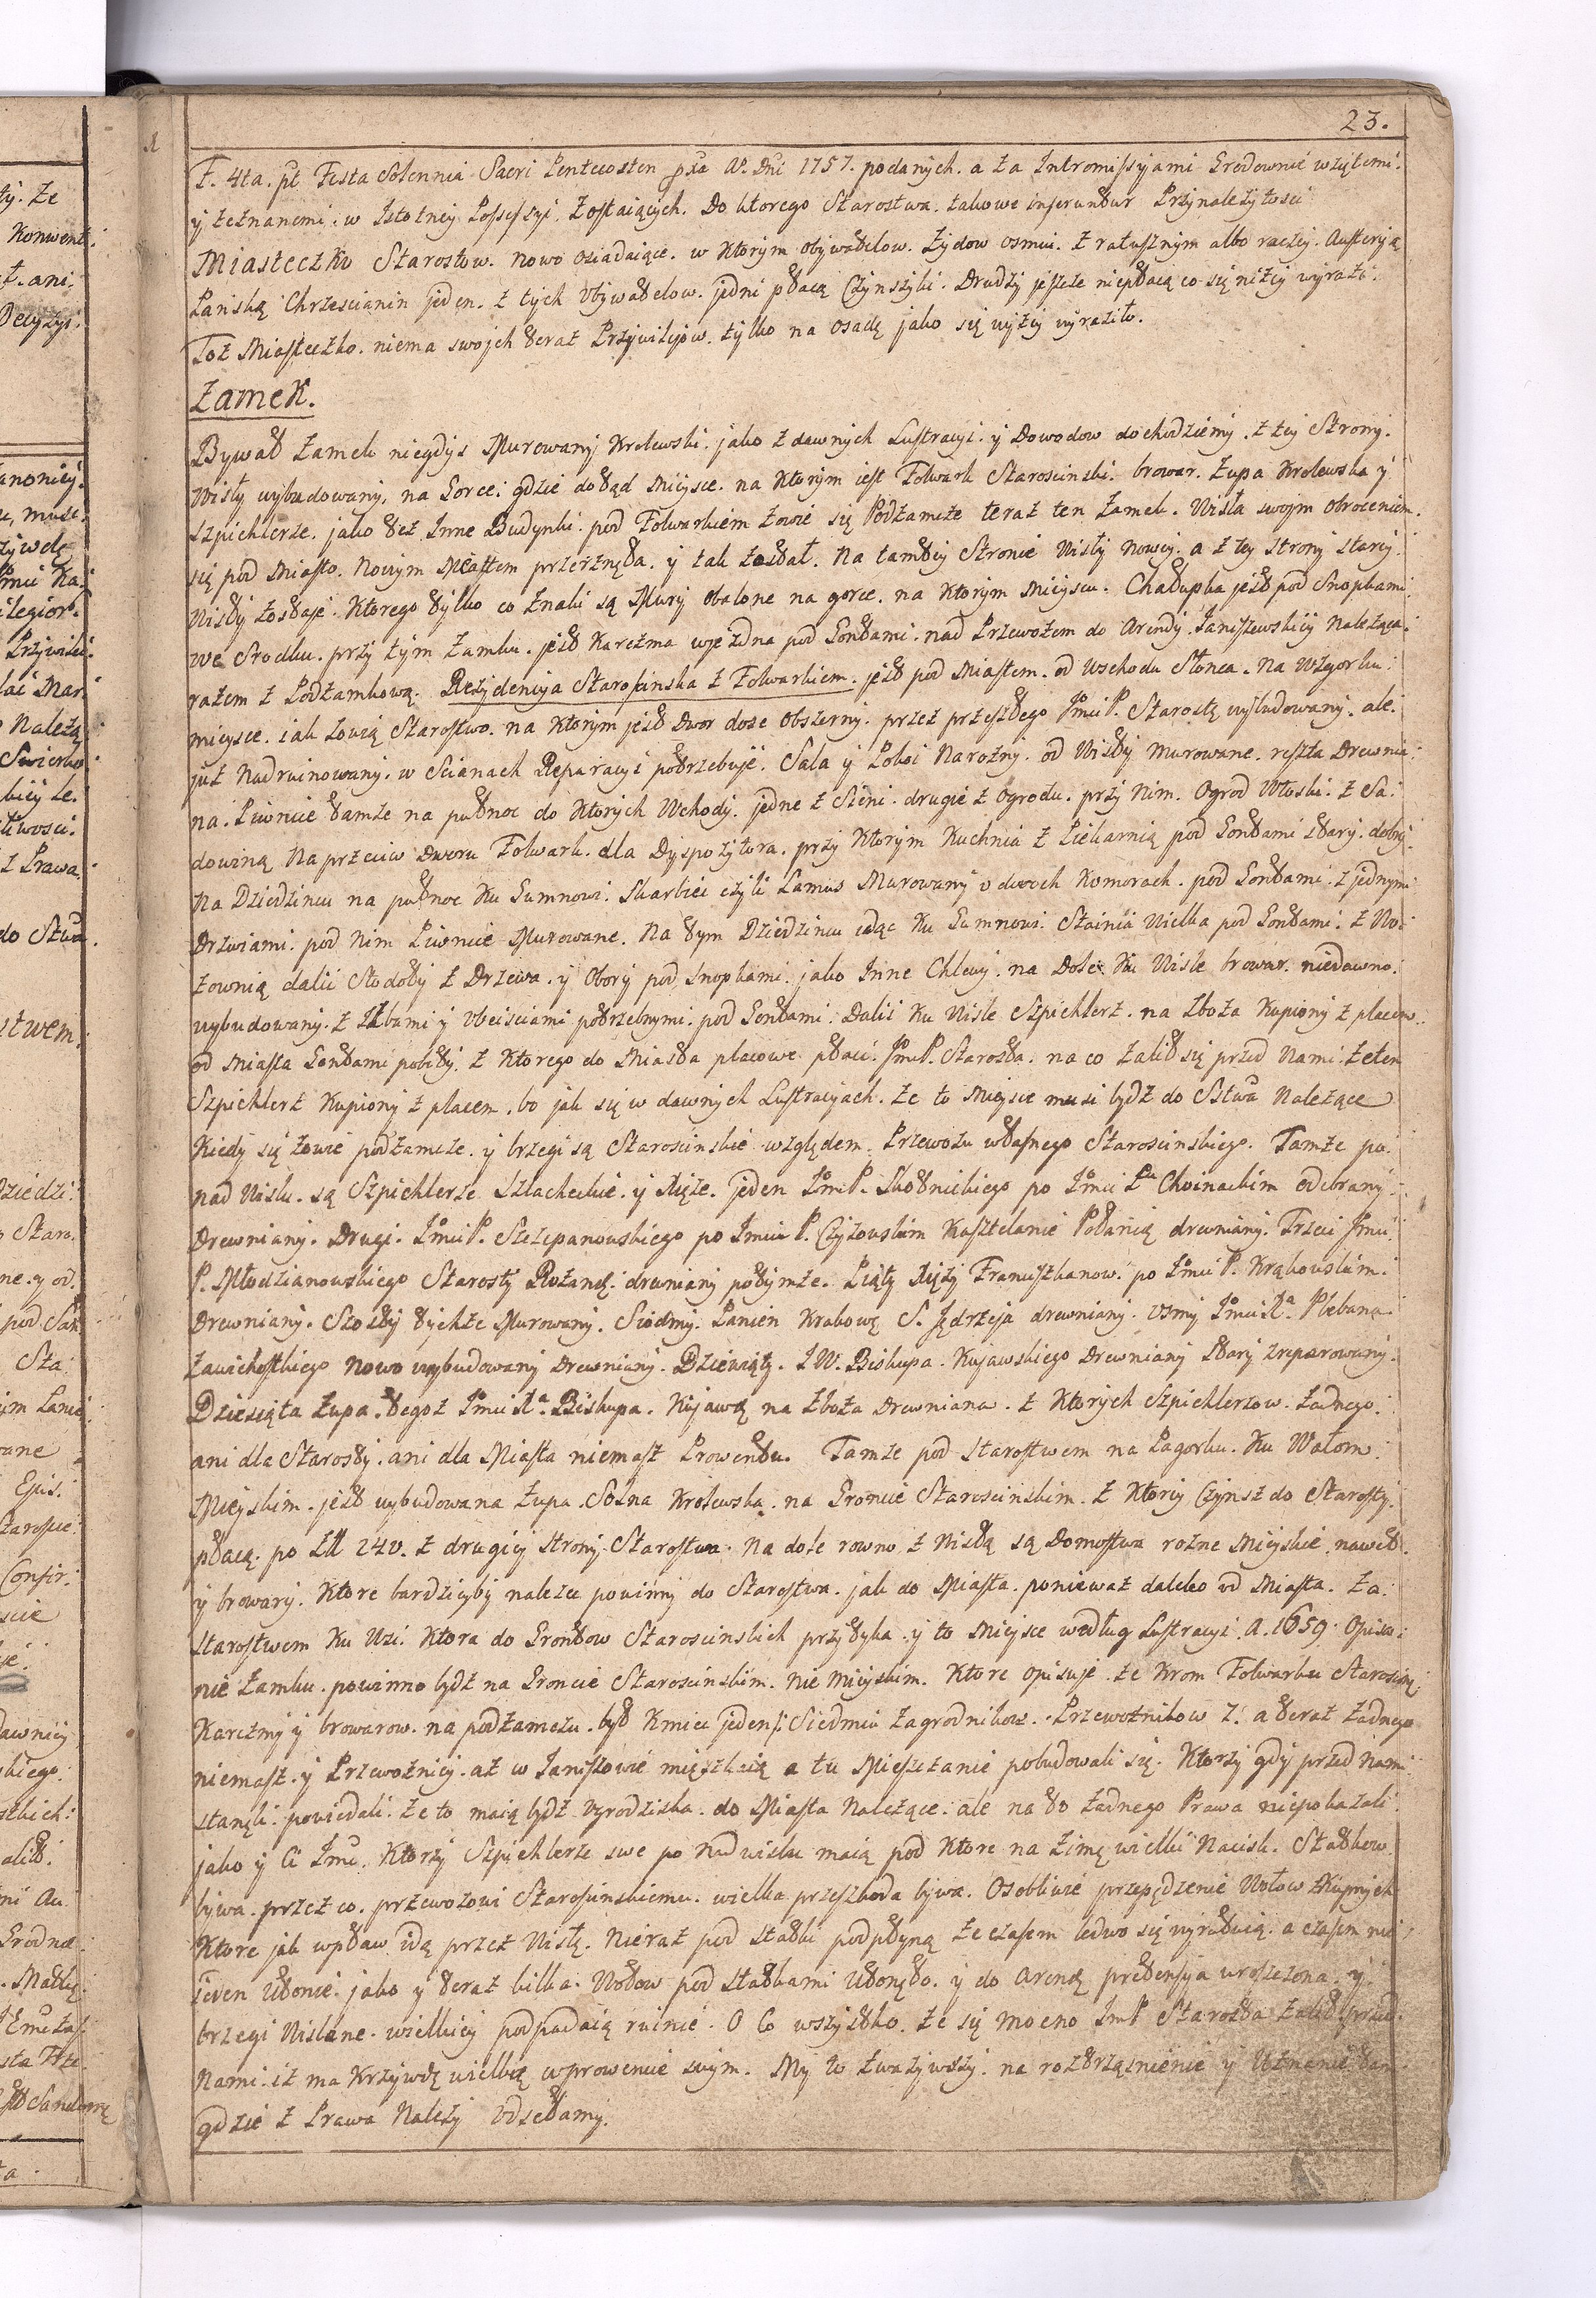 23.
F. 4ta. pt Festa Solennia Sacri Pentecosten pxa A̅o Dni 1757. podanych. a za Intromissyami Grodownie wziętemi.
y zeznanemi. w Istotney Possessyi. Zostaiących. Do ktorego Starostwa. takowe inseruntur Przynależytosci
Miasteczko Starostow. nowo osiadaiące. w Ktorym obywatelow. Zydow osmiu. z ratusznym albo raczey. Austeryą
Panską Chrzescianin jeden. z tych Obywatelow. jedni płacą Czynszyki. Drudzy jeszcze niepłacą co się niżey wyrazi.
Toż Miasteczko. niema swojch teraz Przywilejow. tylko na osadę jako się wyżey wyraziło.
Zamek.
Bywał Zamek niegdys Murowany Krolewski. jako z dawnych Lustracyi. y Dowodow dochodziemy. z tey Strony.
Wisły wybudowany, na Gorce. gdzie dotąd Mieysce. na Ktorym iest Folwark Staroscinski. browar. Zupa Krolewska y
Szpichlerze. jako też Inne Budynki. pod Folwarkiem zowie się Podzamcze teraz ten Zamek. Wisła swojm obroceniem.
się pod Miasto. Nowym Miastem przerznęła. y tak został. Na tamtey Stronie Wisły Nowey. a z tey strony starey.
Wisły zostaje. Ktorego tylko co Znaki są Mury obalone na gorce. na Ktorym Mieyscu. Chałupka jest pod Snopkami.
we Srodku. przy tym Zamku. jest Karczma wjezdna pod Gontami. nad Przewozem do Arendy. Janiszewskiey Należąca.
razem z Podzamkową. Rezydencya Staroscinska z Folwarkiem. jest pod Miastem. od wschodu Słonca. Na wzgorku.
mieysce. iak zowią Starostwo. na Ktorym jest Dwor dosc Obszerny. przez przeszłego Jmci P. Starostę wybudowany. ale.
już Nadruinowany. w Scianach Reparacyi potrzebuje. Sala y Pokoi Narożny. od Wisły murowane. reszta Drewnia
na. Piwnice tamże na pułnoc do Ktorych Wchody. jedne z Sieni. drugie z Ogrodu. przy Nim. Ogrod Włoski. z Sa:
dowiną Naprzeciw Dworu Folwark. dla Dyspozytora. przy Ktorym Kuchnia z Piekarnią pod Gontami stary. dobry.
Na Dziedzincu na pułnoc Ku Gumnowi. Skarbiec czyli Lamus Murowany o dwoch Komorach. pod Gontami. z jednymi
Drzwiami. pod Nim Piwnice Murowane. Na tym Dziedzincu idąc Ku Gumnowi. Stainia Wielka pod Gontami. z Wo:
zownią daliy Stodoły z Drzewa. y Obory pod Snopkami. jako Inne Chlewy. na Dole. Ku Wisle browar. niedawno.
wybudowany. z Izbami y Obeisciami potrzebnymi. pod Gontami. Daliy Ku Wisle Szpichlerz. na Zboża Kupiony z placem.
od Miasta Gontami pobity. z Ktorego do Miasta placowe płaci. Jmć P. Starosta. na co żalił się przed Nami. że ten
Szpichlerz Kupiony z placem. bo jak się w dawnych Lustracyach. że to mieysce musi bydz do Sstwa Należące
Kiedy się zowie podzamcze. y brzegi są Staroscinskie względem. Przewozu własnego Staroscinskiego. Tamże po:
nad Wisłu. są Szpichlerze Szlacheckie. y Xięże. jeden Jmć P. Skotnickiego po Jmci Pu Choinackim odebrany.
Drewniany. Drugi. Jmci P. Szczepanowskiego po Jmciu P. Czyzowskim Kasztelanie Połanią drewniany. Trzeci Jmci
P. Młodzianowskiego Starosty Rożanę. drewniany potymże. Piąty Xięży Franciszkanow. po Jmci P. Krąkowskim.
Drewniany. Szosty tychże Murowany. Siodmy. Panien Krakowę S. Jędrzeja drewniany. Osmy Jmci Xa Plebana.
Zawichostkiego nowo wybudowany Drewniany. Dziewiąty. J.W. Biskupa. Kujawskiego Drewniany Stary zreparowany.
Dziesiąta Zupa. tegoż Jmci Xa. Biskupa. Kujawę na Zboża Drewniana. z Ktorych Szpichlerzow. żadnego.
ani dla Starosty. ani dla Miasta niemasz Prowentu. Tamże pod Starostwem na Pagorku. Ku Wałom.
Mieyskim. jest wybudowana Zupa. Solna Krolewska. na Groncie Staroscinskim. z Ktorey Czynsz do Starosty.
płacą. po Zll 240. z drugiey strony Starostwa. Na dole rowno z Wisłą są Domostwa rożne Mieyskie. nawet.
y browary. Ktore bardzieyby należeć powinny do Starostwa. jak do Miasta. ponieważ daleko od Miasta. za.
Starostwem Ku Wsi. Ktora do Grontow Staroscinskich przytyka. y to Mieysce według Lustracyi. A. 1659. Opisa:
nie Zamku. powinno bydz na Groncie Staroscinskim. nie Mieyskim. Ktore opisuje. że Krom Folwarku Staroscin:
Karczmy y browarow. na podzamczu. był Kmieć jeden. Siedmiu Zagrodnikow. Przewoznikow 7. a teraz żadnego
niemasz. y Przewoźnicy. aż w Janiszowie mięszkaią a tu Mieszczanie pobudowali się. Ktorzy gdy przed Nami
stanęli. powiedali. że to maią bydz Ogrodziska. do Miasta Należące. ale na to żadnego Prawa niepokazali.
jako y Ci Jmć. Ktorzy Szpichlerze swe po nad wisłu maią pod Ktore na Zimę wielki Nacisk. Statkow
bywa. przez co. przewozowi Staroscinskiemu. wielka przeszkoda bywa. Osobliwie przepędzenie Wołow
Ktore jak wpław idą przez Wisłę. Nieraz pod statki podpłyną że czasem ledwo się wyratuią. a czasem nie
jeden Utonie. jako y teraz kilka. Wołow pod statkami Utonęło. y do Arendę pretensya uroszczona. y.
brzegi Wislane. wielkiey podpadaią ruinie. O Co wszystko. że się mocno Jmć P Starosta żalił przed.
Nami. iż ma Krzywdę wielką w prowencie swym. My to zważywszy. na roztrząsnienie y Uznanie tam.
gdzie z Prawa Należy Odsełamy.